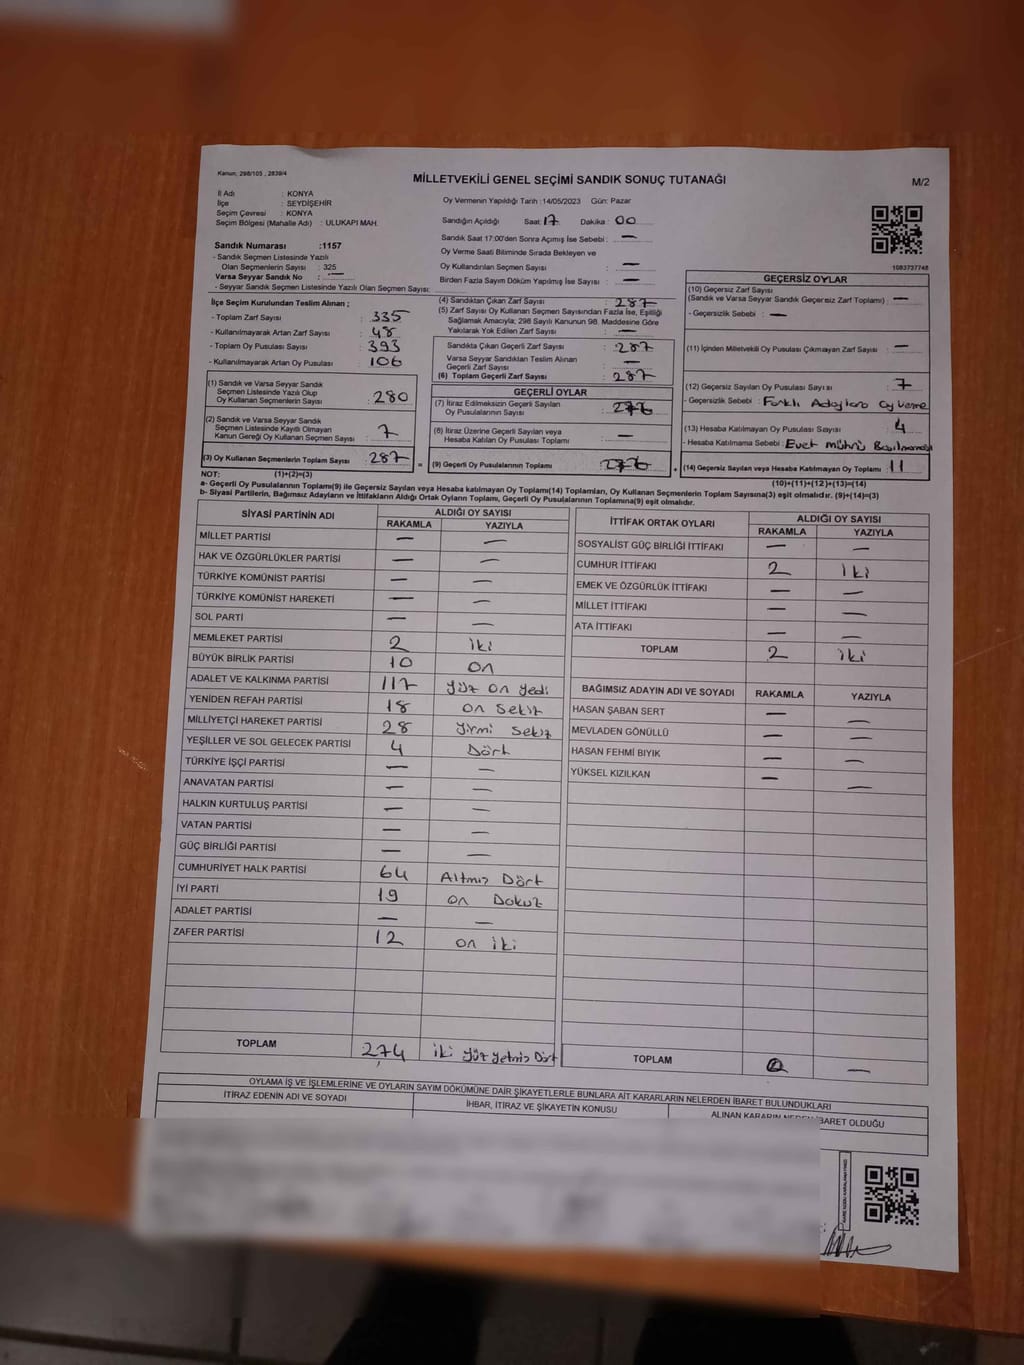 Kanun: 298/105 , 2839/4
MİLLETVEKİLİ GENEL SEÇİMİ SANDIK SONUÇ TUTANAĞI
M/2
İl Adı : KONYA
İlçe : SEYDİŞEHİR
Seçim Çevresi : KONYA
Seçim Bölgesi (Mahalle Adı) : ULUKAPI MAH.
Sandık Numarası :1157
- Sandık Seçmen Listesinde Yazılı
Olan Seçmenlerin Sayısı : 325
Varsa Seyyar Sandık No : —
- Seyyar Sandık Seçmen Listesinde Yazılı Olan Seçmen Sayısı:
Oy Vermenin Yapıldığı Tarih :14/05/2023 Gün: Pazar
Sandığın Açıldığı Saat: 17 Dakika : 00
Sandık Saat 17:00'den Sonra Açımış İse Sebebi : —
Oy Verme Saati Bitiminde Sırada Bekleyen ve
Oy Kullandırılan Seçmen Sayısı : —
Birden Fazla Sayım Döküm Yapılmış İse Sayısı : —
1083737748
İlçe Seçim Kurulundan Teslim Alınan ;
- Toplam Zarf Sayısı : 335
- Kullanılmayarak Artan Zarf Sayısı : 48
- Toplam Oy Pusulası Sayısı : 393
- Kullanılmayarak Artan Oy Pusulası : 106
(1) Sandık ve Varsa Seyyar Sandık
Seçmen Listesinde Yazılı Olup
Oy Kullanan Seçmenlerin Sayısı : 280
(2) Sandık ve Varsa Seyyar Sandık
Seçmen Listesinde Kayıtlı Olmayan
Kanun Gereği Oy Kullanan Seçmen Sayısı : 7
(3) Oy Kullanan Seçmenlerin Toplam Sayısı : 287
(4) Sandıktan Çıkan Zarf Sayısı : 287
(5) Zarf Sayısı Oy Kullanan Seçmen Sayısından Fazla İse, Eşitliği
Sağlamak Amacıyla; 298 Sayılı Kanunun 98. Maddesine Göre
Yakılarak Yok Edilen Zarf Sayısı : —
Sandıkta Çıkan Geçerli Zarf Sayısı : 287
Varsa Seyyar Sandıktan Teslim Alınan
Geçerli Zarf Sayısı : —
(6) Toplam Geçerli Zarf Sayısı : 287
GEÇERLİ OYLAR
(7) İtiraz Edilmeksizin Geçerli Sayılan
Oy Pusulalarının Sayısı : 276
(8) İtiraz Üzerine Geçerli Sayılan veya
Hesaba Katılan Oy Pusulası Toplamı : —
= (9) Geçerli Oy Pusulalarının Toplamı : 276 +
GEÇERSİZ OYLAR
(10) Geçersiz Zarf Sayısı
(Sandık ve Varsa Seyyar Sandık Geçersiz Zarf Toplamı) : —
- Geçersizlik Sebebi : —
(11) İçinden Milletvekili Oy Pusulası Çıkmayan Zarf Sayısı : —
(12) Geçersiz Sayılan Oy Pusulası Sayısı : 7
- Geçersizlik Sebebi : Farklı Adaylara oy verme
(13) Hesaba Katılmayan Oy Pusulası Sayısı : 4
- Hesaba Katılmama Sebebi : Evet Mührü Basılmamış
(14) Geçersiz Sayılan veya Hesaba Katılmayan Oy Toplamı : 11
NOT: (1)+(2)=(3)
(10)+(11)+(12)+(13)=(14)
a- Geçerli Oy Pusulalarının Toplamı(9) ile Geçersiz Sayılan veya Hesaba Katılmayan Oy Toplamı(14) Toplamları, Oy Kullanan Seçmenlerin Toplam Sayısına(3) eşit olmalıdır. (9)+(14)=(3)
b- Siyasi Partilerin, Bağımsız Adayların ve İttifakların Aldığı Ortak Oyların Toplamı, Geçerli Oy Pusulalarının Toplamına(9) eşit olmalıdır.
SİYASİ PARTİNİN ADI ALDIĞI OY SAYISI
RAKAMLA YAZIYLA
MİLLET PARTİSİ — —
HAK VE ÖZGÜRLÜKLER PARTİSİ — —
TÜRKİYE KOMÜNİST PARTİSİ — —
TÜRKİYE KOMÜNİST HAREKETİ — —
SOL PARTİ — —
MEMLEKET PARTİSİ 2 iki
BÜYÜK BİRLİK PARTİSİ 10 on
ADALET VE KALKINMA PARTİSİ 117 yüz on yedi
YENİDEN REFAH PARTİSİ 18 on sekiz
MİLLİYETÇİ HAREKET PARTİSİ 28 yirmi sekiz
YEŞİLLER VE SOL GELECEK PARTİSİ 4 Dört
TÜRKİYE İŞÇİ PARTİSİ — —
ANAVATAN PARTİSİ — —
HALKIN KURTULUŞ PARTİSİ — —
VATAN PARTİSİ — —
GÜÇ BİRLİĞİ PARTİSİ — —
CUMHURİYET HALK PARTİSİ 64 Altmış Dört
İYİ PARTİ 19 on Dokuz
ADALET PARTİSİ — —
ZAFER PARTİSİ 12 on iki
TOPLAM 274 iki yüz yetmiş Dört
İTTİFAK ORTAK OYLARI ALDIĞI OY SAYISI
RAKAMLA YAZIYLA
SOSYALİST GÜÇ BİRLİĞİ İTTİFAKI — —
CUMHUR İTTİFAKI 2 iki
EMEK VE ÖZGÜRLÜK İTTİFAKI — —
MİLLET İTTİFAKI — —
ATA İTTİFAKI — —
TOPLAM 2 iki
BAĞIMSIZ ADAYIN ADI VE SOYADI RAKAMLA YAZIYLA
HASAN ŞABAN SERT — —
MEVLADEN GÖNÜLLÜ — —
HASAN FEHMI BIYIK — —
YÜKSEL KIZILKAN — —
TOPLAM —
OYLAMA İŞ VE İŞLEMLERİNE VE OYLARIN SAYIM DÖKÜMÜNE DAİR ŞİKAYETLERLE BUNLARA AİT KARARLARIN NELERDEN İBARET BULUNDUKLARI
İTİRAZ EDENİN ADI VE SOYADI İHBAR, İTİRAZ VE ŞİKAYETİN KONUSU ALINAN KARARIN NEDEN İBARET OLDUĞU